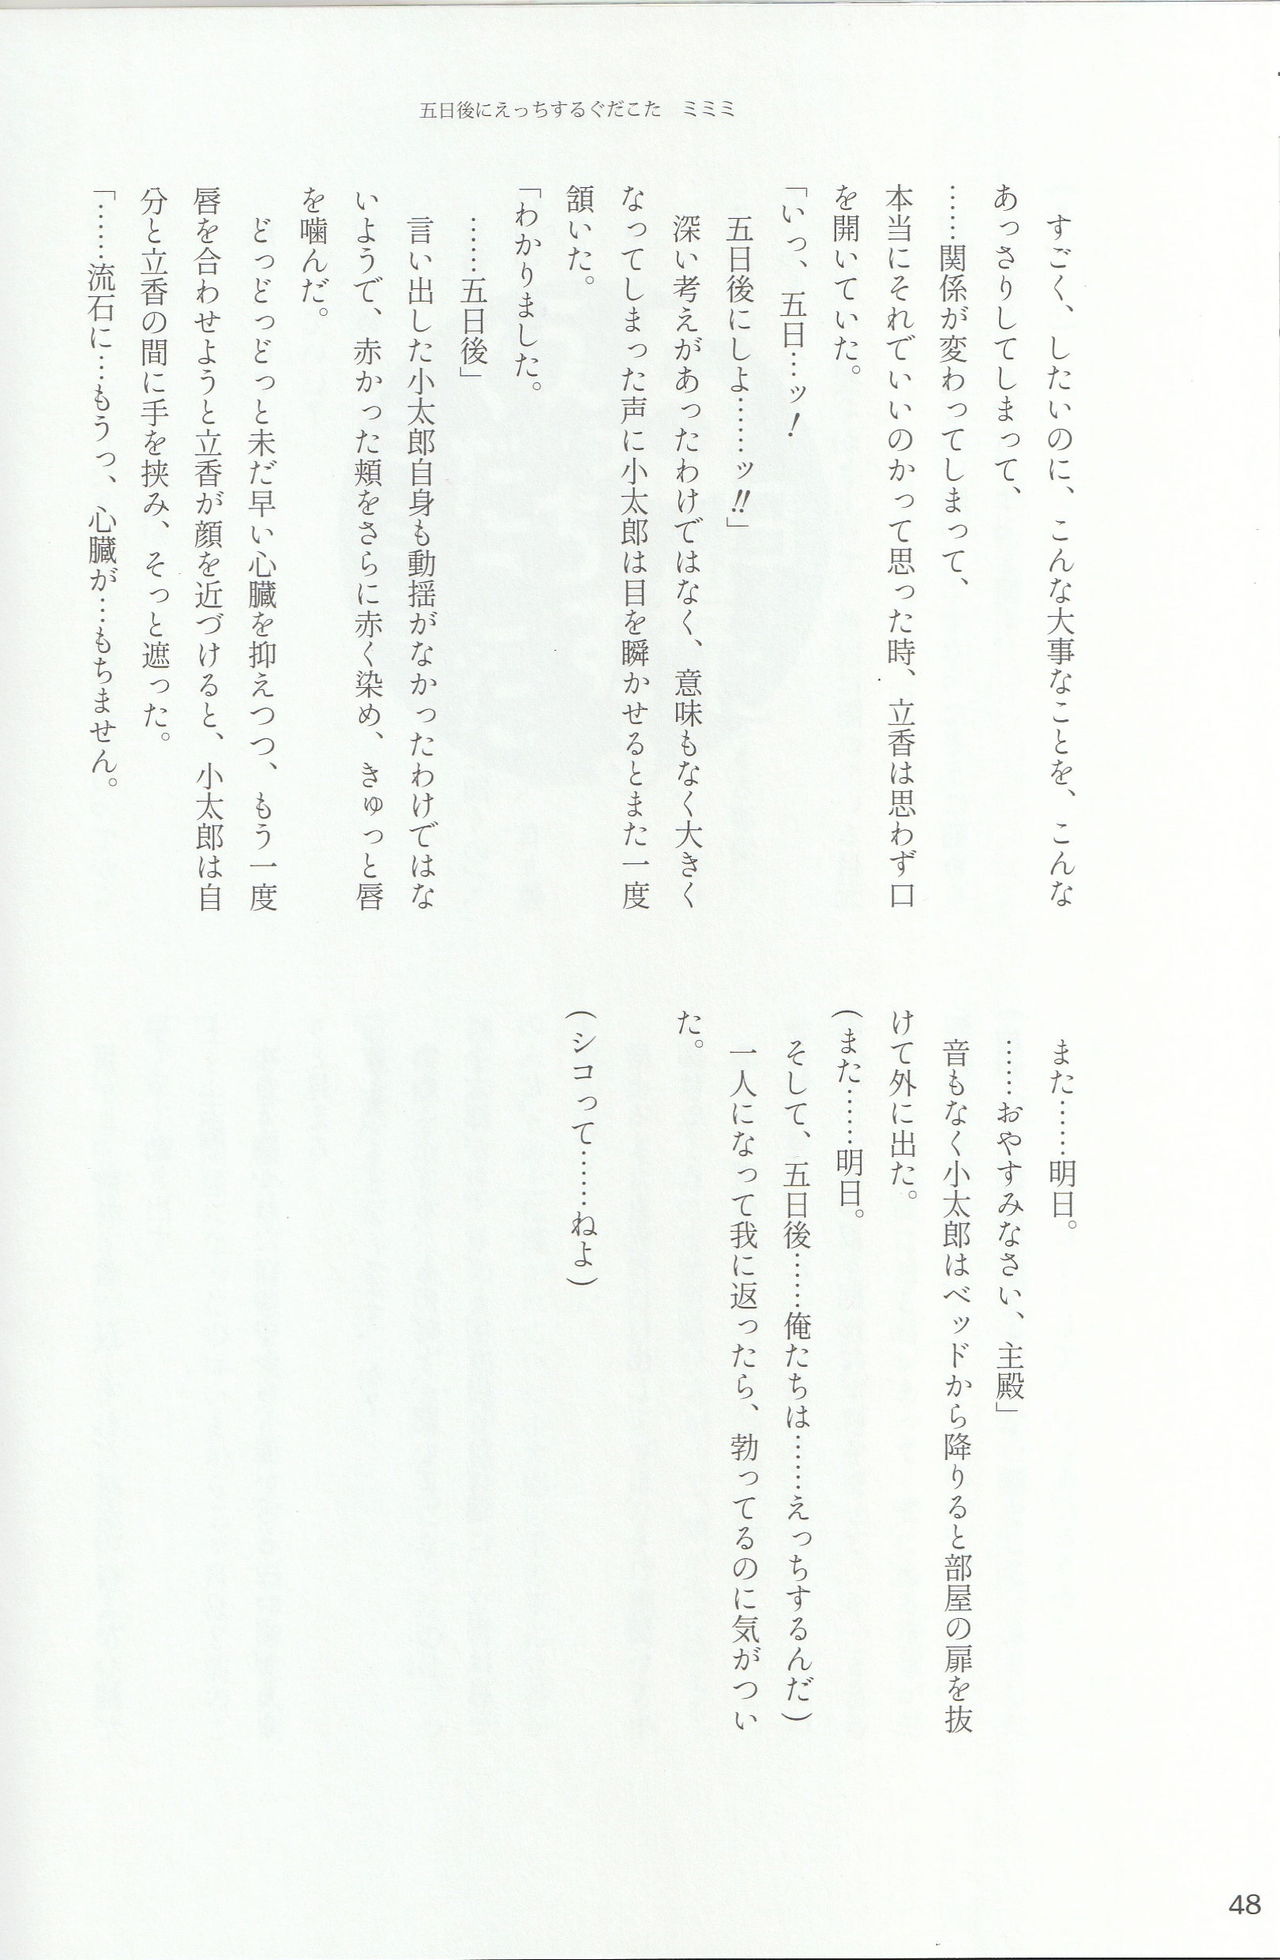 五日後にえっちするぐだこた　ミミミ
すごく、したいのに、こんな大事なことを、こんな
あっさりしてしまって、
……関係が変わってしまって、
本当にそれでいいのかって思った時、立香は思わず口
を開いていた。
「いっ、五日…ッ！
五日後にしよ……ッ!!」
深い考えがあったわけではなく、意味もなく大きく
なってしまった声に小太郎は目を瞬かせるとまた一度
頷いた。
「わかりました。
……五日後」
言い出した小太郎自身も動揺がなかったわけではな
いようで、赤かった頬をさらに赤く染め、きゅっと唇
を噛んだ。
どっどっどっと未だ早い心臓を抑えつつ、もう一度
唇を合わせようと立香が顔を近づけると、小太郎は自
分と立香の間に手を挟み、そっと遮った。
「……流石に…もうっ、心臓が…もちません。
また……明日。
……おやすみなさい、主殿」
音もなく小太郎はベッドから降りると部屋の扉を抜
けて外に出た。
(また……明日。
そして、五日後……俺たちは……えっちするんだ)
一人になって我に返ったら、勃ってるのに気がつい
た。
(シコって……ねよ)
48